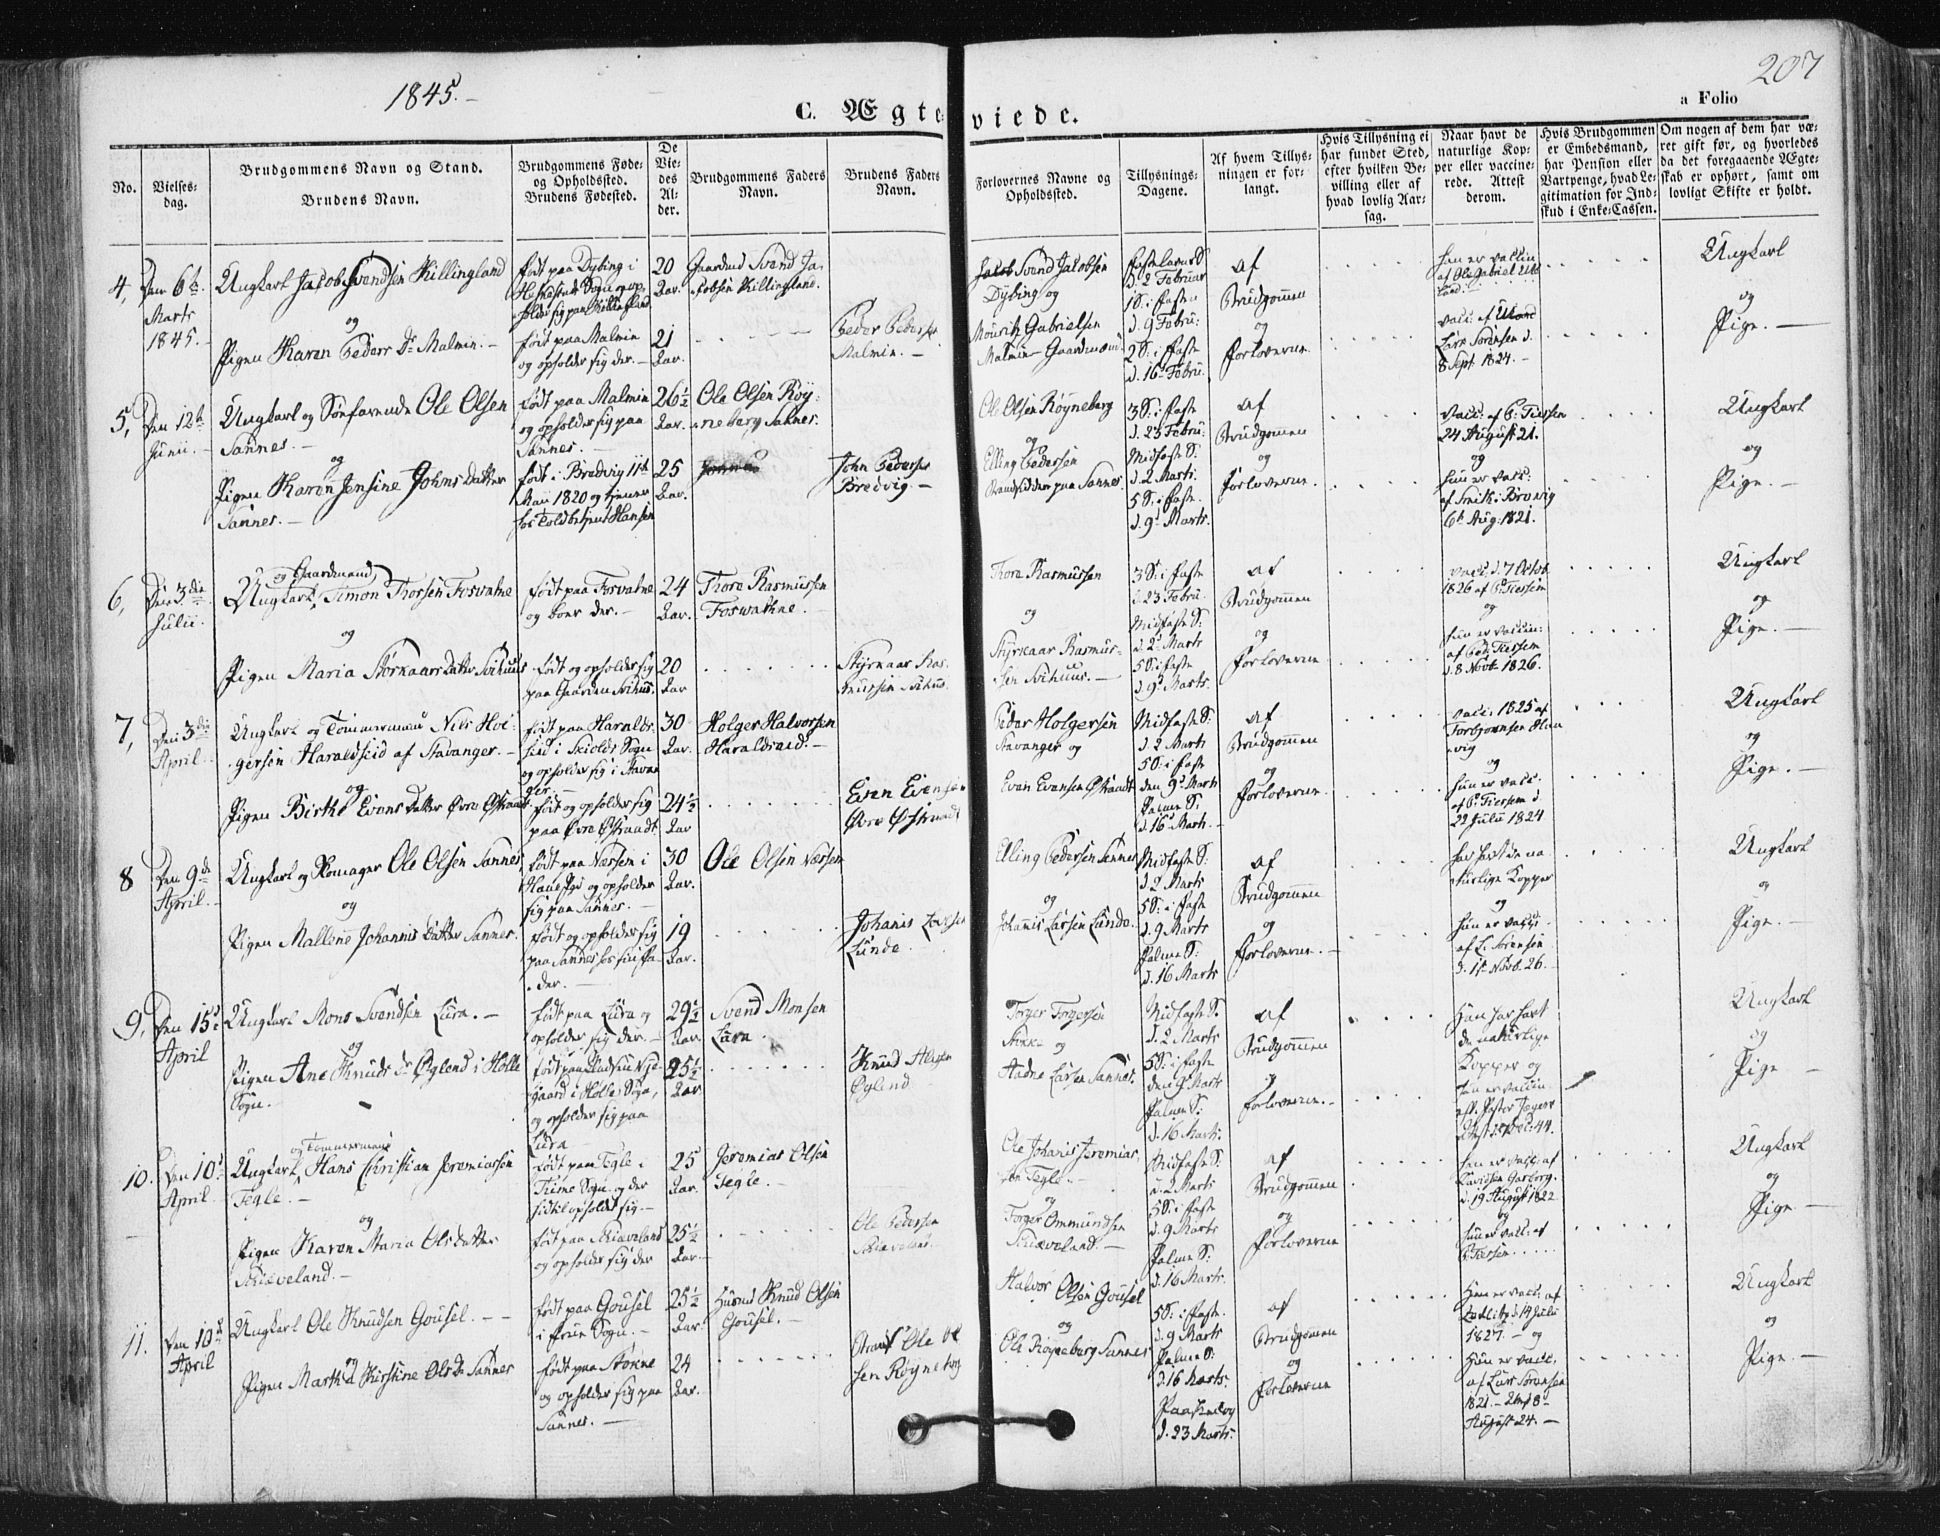 1845.
207
a Folio
C. Ægteviede.
No.
Vielses-
dag.
Brudgommens Navn og Stand.
Brudens Navn.
Brudgommens Føde-
og Opholdssted.
Brudens Fødested.
De
Vie-
des
Al-
der.
Brudgommens Faders
Navn.
Brudens Faders
Navn.
Forlovernes Navne og
Opholdssted.
Tillysnings-
Dagene.
Af hvem Tillys-
ningen er for-
langt.
Hvis Tillysning ei
har fundet Sted,
efter hvilken Be-
villing eller af
hvad lovlig Aar-
sag.
Naar havt de
naturlige Kop-
per eller vaccine-
rede. Attest
derom.
Hvis Brudgommen
er Embedsmand,
har Pension eller
Vartpenge, hvad Le-
gitimation for Ind-
skud i Enke-Cassen.
Om nogen af dem har væ-
ret gift før, og hvorledes
da det foregaaende Ægte-
skab er ophørt, samt om
lovligt Skifte er holdt.
4,
Den 6te
Marts
1845.
Ungkarl Jacob Svendsen Killingland
og
Pigen Karen Peders Dr Malmin. -
født paa Dybing i
Sogn og op-
holder sig paa Killingland
født paa Malmin
og opholder sig der. -
20
Aar.
21
Aar.
Gaardmd Svend Ja-
cobsen Killingland.
Peder Peders
Malmin. -
Svend Jacobsen
Dybing og
Mouritz Gabrielsen
Malmin Gaardmænd
Fastelavns S
d. 2 Februar
1 S: i Faste
d. 9 Febru:
2 S: i Faste
d. 16 Febru.
af
Brudgommen
og
Forloverne
han er vaccin
af Ole Gabriel
vacc: af
Lars Sørensen d.
8 Sept. 1824. -
Ungkarl
og
Pige. -
5,
Den 12te
Junii. -
Ungkarl og Søefarende Ole Olsen
Sannes. -
og
Pigen Karen Jensine Johns Datter
Sannes. -
født paa Malmin
og opholder sig paa
Sannes. -
født i Bredvig 11te
Maii 1820 og tjener
hos Toldbetjent Hansen
26½
Aar.
25
Aar.
Ole Olsen Røy-
neberg Sannes.
John Peders
Bredvig. -
Ole Olsen Røyneberg
og
Elling Pedersen
Strandsidder paa Sannes
3 S: i Faste
d. 23 Febru:
Midfaste S.
d. 2 Marts.
5 S: i Faste.
d. 9d Marts.
af
Brudgommen
og
Forloverne.
vacc: af P: Tiessen
24 August 21.
og
hun er vacc:
af Smith: Brevig
6te Aug: 1821.
Ungkarl
og
Pige. -
6,
Den 3die
Julii.
og Gaardmand,
Ungkarl, Simon Thorsen Fosvatne
og
Pigen Maria Størkaars Datter Svihuus
født paa Fosvatne
og boer der. -
født og opholder sig
paa Gaarden Svihus.
24
Aar.
20
Aar
Thore Rasmussen
Foswatne.
Styrkaar Ras-
mussen Svihus
Thore Rasmussen
og
Styrkaar Rasmus-
sen Svihuus. -
3 S: i Faste
d. 23 Febru.
Midfaste S:
d. 2d Marts
5 S: i Faste
d. 9d Marts.
af
Brudgommen
og
Forloverne
vacc: d. 7 Octob
1826 af P: Tiessen
og
hun er vaccin:
af Ped: Tiessen
d. 8 Novb 1826.
Ungkarl
og
Pige. -
7,
Den 3die
April.
Ungkarl og Tømmermand Nils Hol-
gersen Haraldseid af Stavanger. -
og
Pigen Birthe Evens Datter Øvre Østraadt
født paa Haralds-
eid i Skiolds Sogn
og opholder sig i Stavan
ger. -
født og opholder sig
paa Øvre Østraadt.
30
Aar.
24½
Aar
Holger Halvorsen
Haraldseid. -
Even Evensen
Øvre Østraadt
Peder Holgersen
Stavanger og
Even Evensen Østraadt
Midfaste S:
d. 2 Marts
5 S: i Faste
den 9d Marts
Palme S:
d. 16 Mart. -
af
Brudgommen
og
Forloverne.
vacc: 1825 af
og
hun er vacc:
af P: Tiessen d.
22 Julii 1824
Ungkarl
og
Pige. -
8
Den 9de
April. -
Ungkarl og Romager Ole Olsen Sannes
og
Pigen Mallene Johannis Datter Sannes.
født paa Næssem i
og opholder
sig paa Sannes. -
født og opholder sig
paa Sannes hos sin Fa-
der. -
30
Aar.
19
Aar.
Ole Olsen Næssen
Johanis Larsen
Lunde.
Elling Pedersen Sannes
og
Johannis Larsen Lunde.
Midfaste S:
d. 2 Marts
5 S: i Faste
d. 9 Marts
Palme S:
d. 16 Marts
af
Brudgommen
og
Forloverne. -
har havt de na
turlige Kopper
og
hun er vacc:
af L: Sørensen
d. 15 Novb. 26. -
Ungkarl
og
Pige. -
9,
Den 15de
April
Ungkarl Mons Svendsen Lura. -
og
Pigen Ane Knuds Dr Øglend i Hølle
Sogn. -
født paa Lura og
opholder sig der. -
gaard i Hølle Sogn,
og opholder sig paa
Lura -
29½
Aar.
25½
Aar.
Svend Monsen
Lura
Knud
Øglend
Torger Torgersen
Stokk- og
Aadne Larsen Sannes.
Midfaste S.
d. 2 Marts
5 S: i Faste
den 9d Mart
Palme S:
d. 16 Mart:
af
Brudgommen
og
Forloverne. -
Han har havt
de naturlige
Kopper og
hun er vaccin
Ungkarl
og
Pige -
10.
Den 10de
April
og Tømmermand
Ungkarl, Hans Christian Jeremiassen
Tegle. -
og
Pigen Karen Maria Ols Datter
Skiæveland. -
født paa Tegle i
Time Sogn og der
sidst opholdt sig. -
født paa Skiæveland
og opholder sig der
25
Aar.
25½
Aar.
Jeremias Olsen
Tegle. -
Ole Pedersen
Skiæveland.
Ole Johanis Jeremias,
sen Tegle. -
og
Torger Ommundsen
Skiæveland. -
Midfaste S:
d. 2 Marts
5 S: i Faste
d. 9 Marts
Palme S:
d. 16 Marts.
af
Brudgommen
og
Forloverne
han er vacc: af
Davidsen Garborg.
d. 19 August 1822
og
hun er vacc: af
P: Tiessen
Ungkarl
og
Pige -
11.
Den 10de
April
Ungkarl Ole Knudsen Gousel. - -
og
Pigen Martha Kirstine Ols Dr Sannes
født paa Gousel
i Sogn. -
født paa Stokke
og opholder sig paa
Sannes. -
25½
Aar.
24
Aar.
Huusmd Knud Olsen
Gousel. -
Ole Ol
sen Røyneberg
Halvor Olsen Gousel
og
Ole Røyneberg Sannes
5 S: i Faste.
d. 9 Marts
Palme S:
d. 16 Marts.
Paaskedag
d. 23 Marts:
af
Brudgommen
og
Forloverne
Han er vacc: af
d. 14 Julii
1827. - og
Hun er vacc:
af Lars Sørensen
1821. - Attest 8de
August 24. -
Ungkarl
og
Pige. -